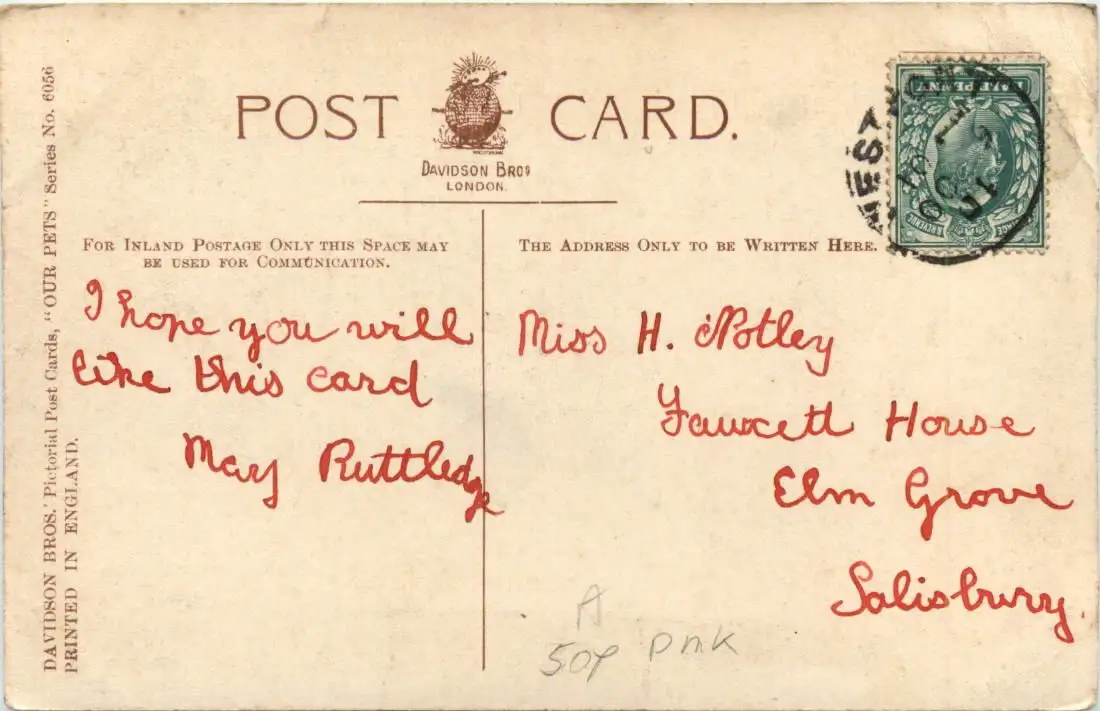 POST CARD.
DAVIDSON BROS
LONDON.
FOR INLAND POSTAGE ONLY THIS SPACE MAY
BE USED FOR COMMUNICATION.
THE ADDRESS ONLY TO BE WRITTEN HERE.
I hope you will
like this card
May Ruttledge
Miss H. Notley
Fawcett House
Elm Grove
Salisbury.
A
50p pmk
DAVIDSON BROS.' Pictorial Post Cards, "OUR PETS" Series No. 6056
PRINTED IN ENGLAND.
HALFPENNY